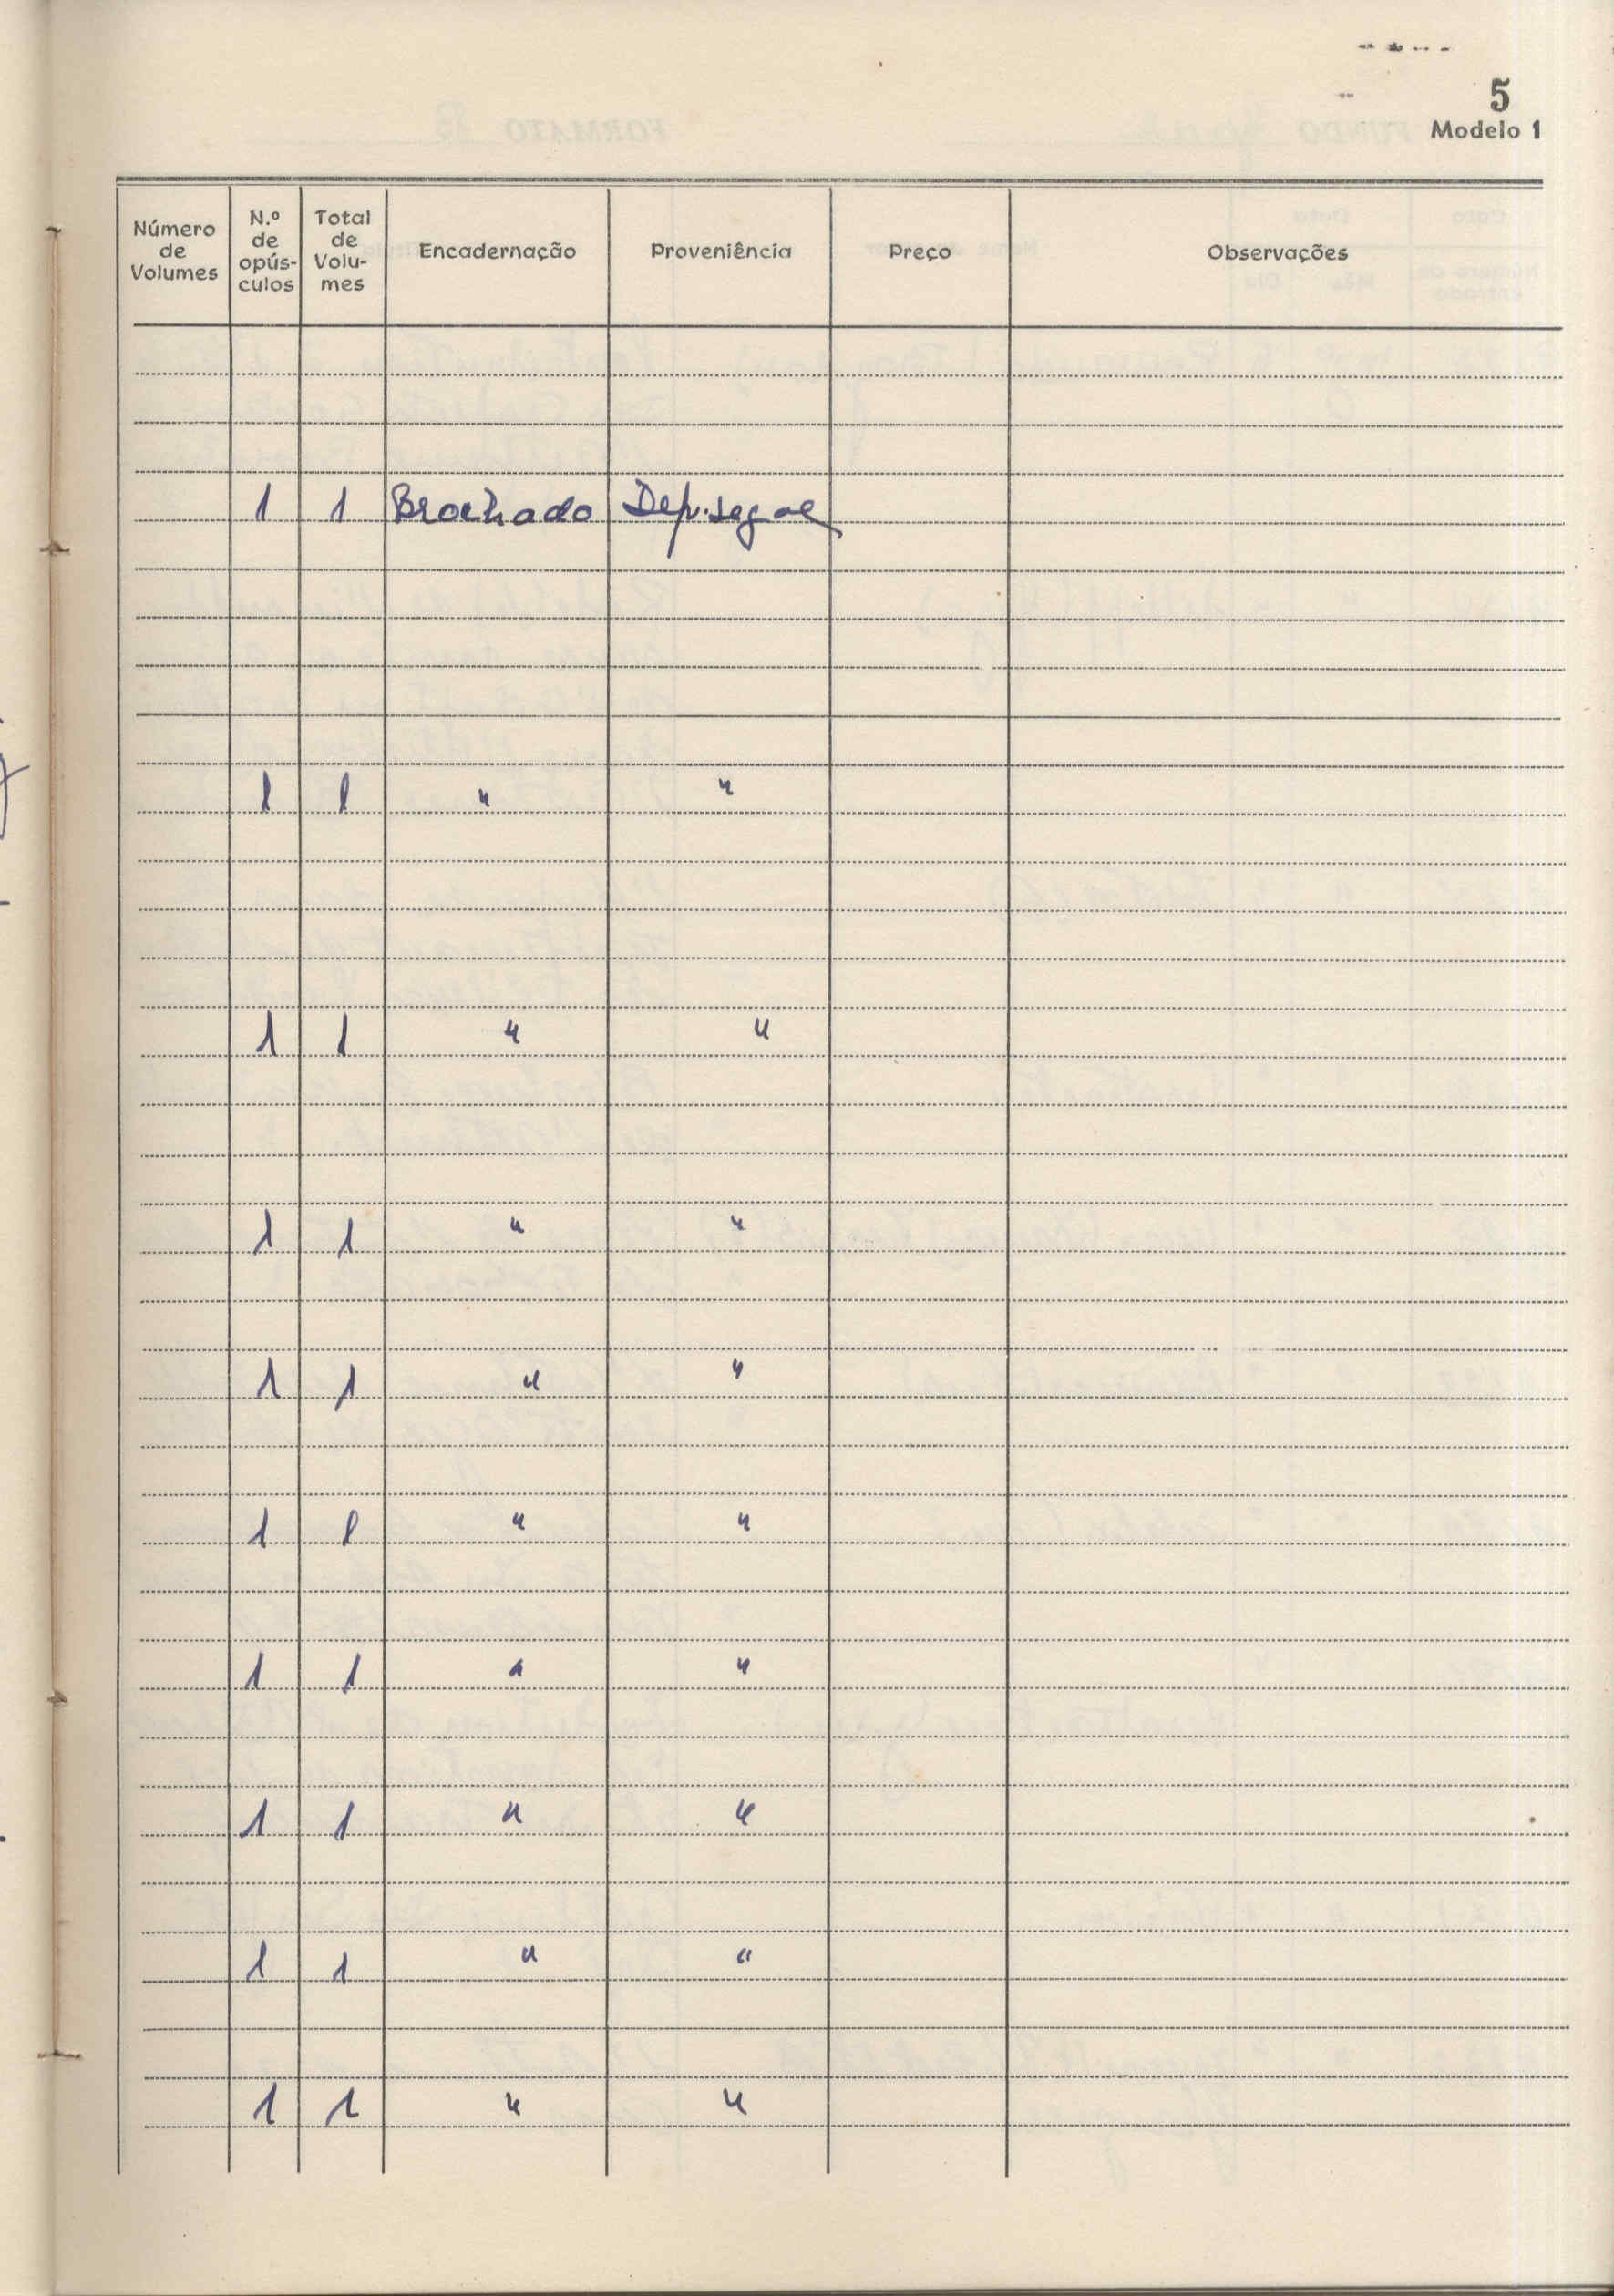 5
Modelo 1
Número de Volumes | N.º de opús-culos | Total de Volu-mes | Encadernação | Proveniência | Preço | Observações
1 1 Brochado Dep. Legal
1 1 " "
1 1 " "
1 1 " "
1 1 " "
1 1 " "
1 1 " "
1 1 " "
1 1 " "
1 1 " "